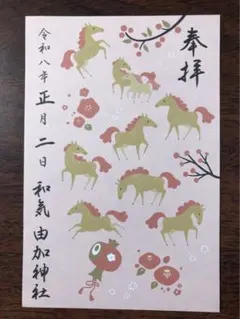 奉拝
令和八年正月二日
和気由加神社